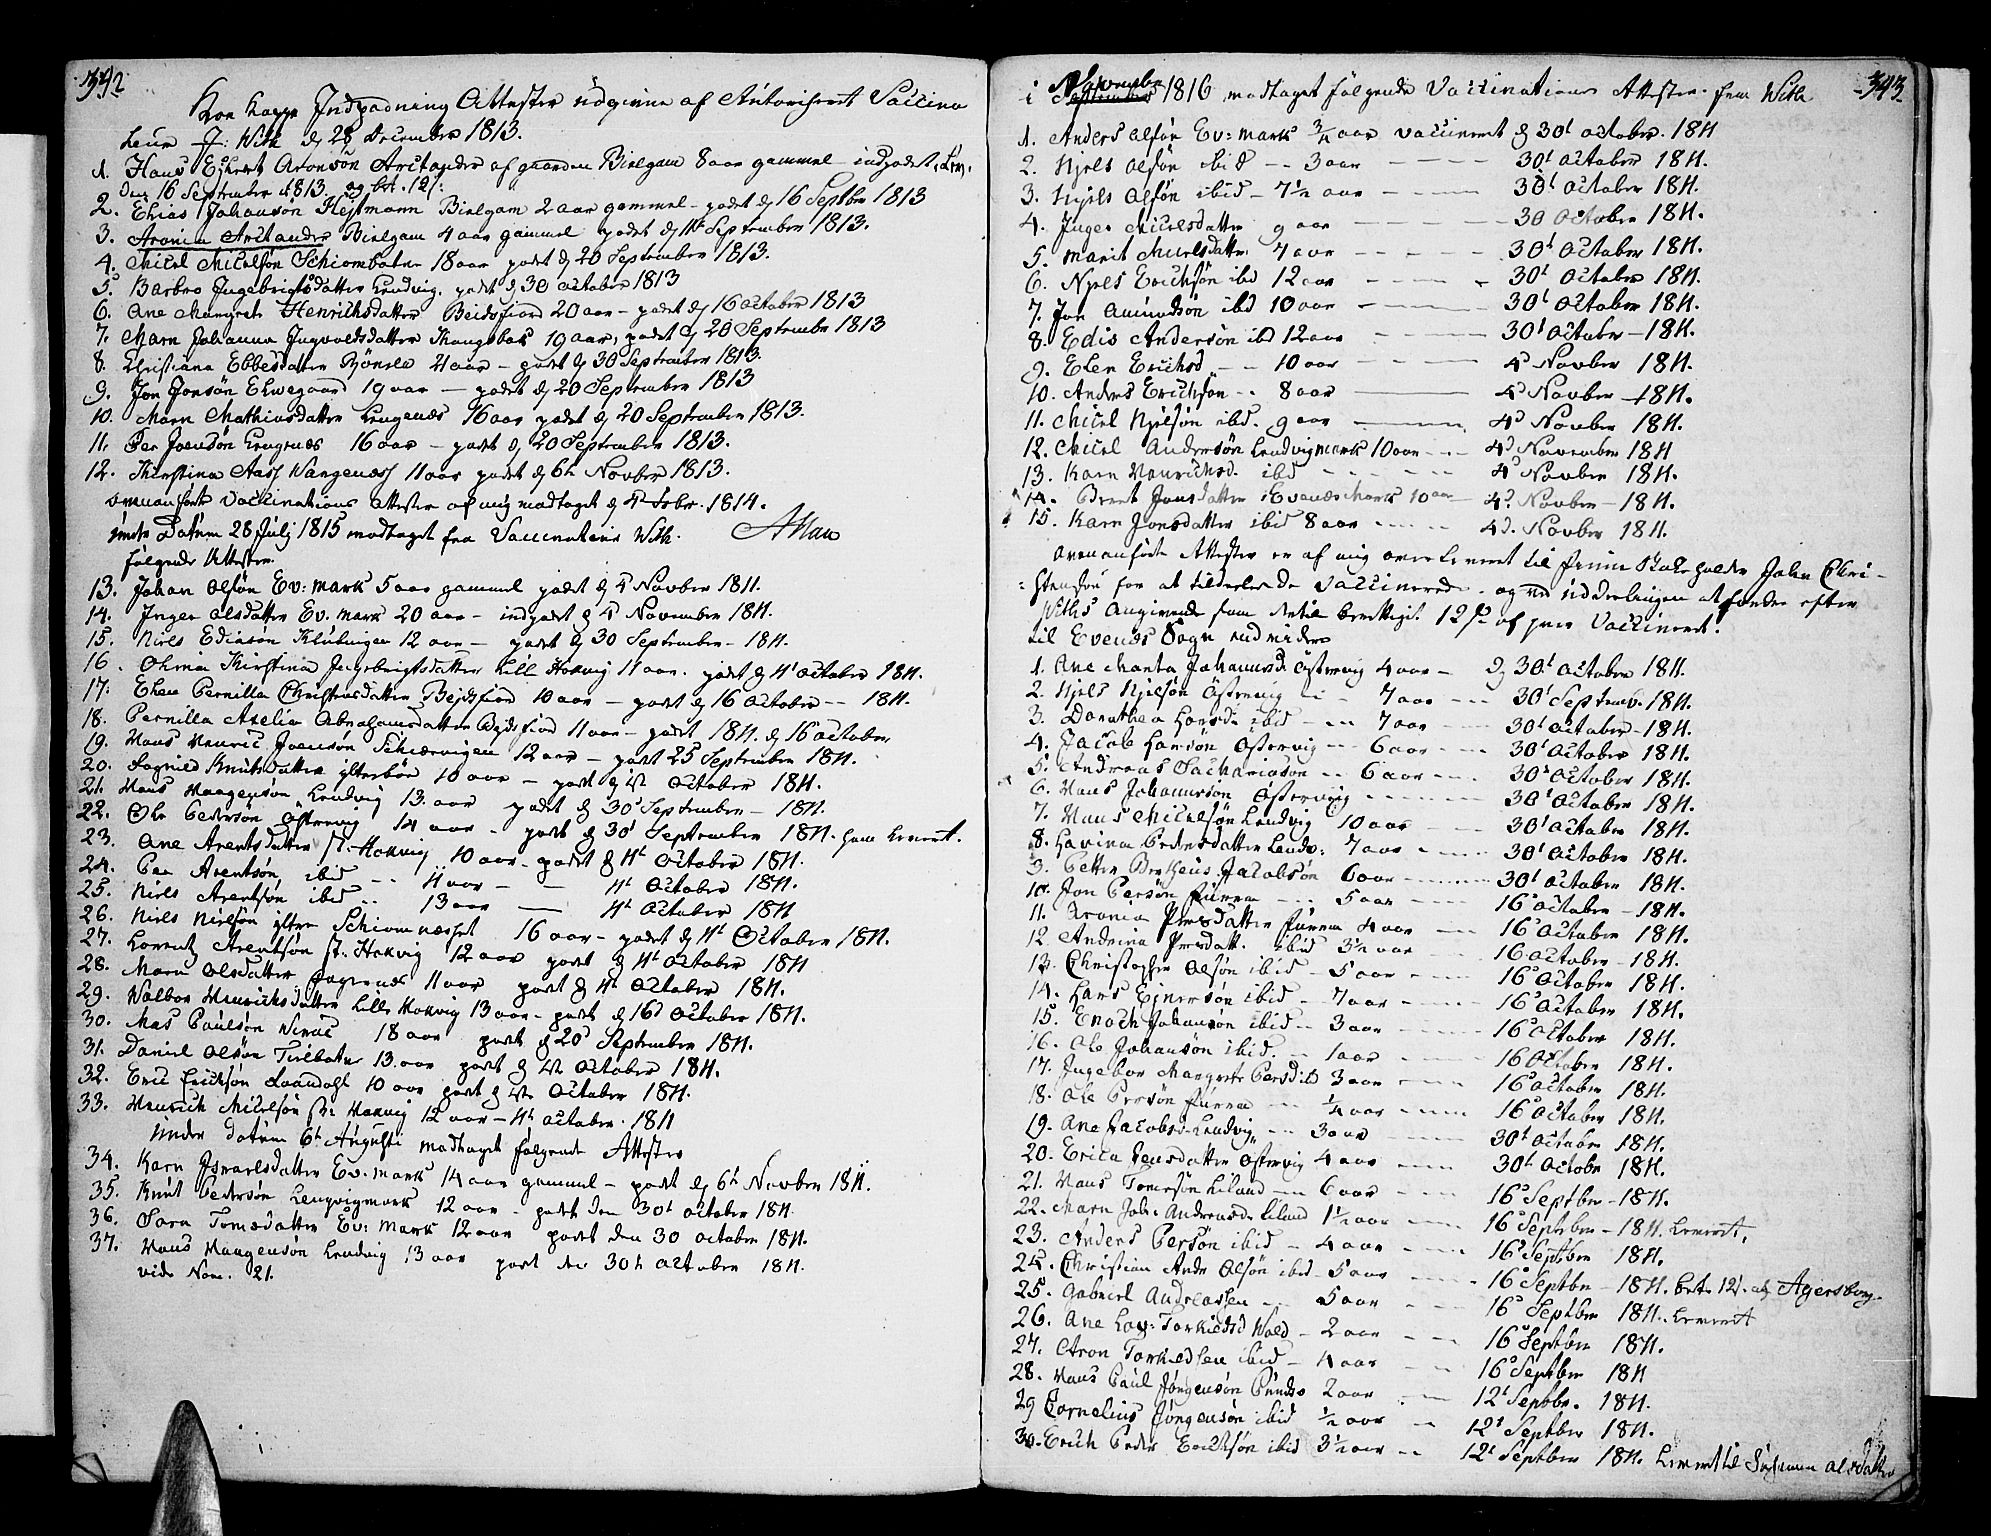 342.
Koe Koppe Indpodning Attester udgivne af Autoriseret Vaccina
teur J: With d 28 December 1813.
1. Hans Eggert Aronsøn Arctander af gaarden Bielgam 8 aar gammel - indpodet
den 16 September 1813.
2. Elias Johansøn Hejtmann Bielgam 2 aar gammel - podet d 16 Septbr 1813
3. Aronia Arctander Bielgam 4 aar gammel podet d September 1813.
4. Michel Michelsøn 18 aar podet d 20 September 1813.
5. Barbro Ingebrigtsdatter Lendvig. podet d 30 October 1813
6. Ane Margrete Henrichsdatter Beidsfiord 20 aar - podet d 16 October 1813
7. Maren Johanna Ingvoldsdatter 19 aar, podet d 20 September 1813
8. Christiana Ebbesdatter 21 aar - podet d 30 September 1813.
9. Jon Jonsøn Elvegaard 19 aar - podet d 20 September 1813
10. Maren Mathiasdatter Lengenæs 16 aar podet d 20 September 1813.
11. Per Joensøn Lengenæs 16 aar - podet d 20 September 1813.
12. Kirstina Aas Vangenæs 11 aar podet d 6te Novber 1813.
ovenanførte Vaccinations Attester af mig modtaget d 4 Febr. 1814.
under Datum 28 Julj 1815 modtaget fra Vaccinateur With.
følgende Attester.
13. Johan Olsøn Ev: mark 5 aar gammel podet d 4 Novber 1811.
14. Inger Olsdatter Ev. mark 20 aar - indpodet d 4 November 1811.
15. Niels Ediasøn Klubvigen 12 aar - podet d 30 September - 1811.
16. Kirstina Ingebrigtsdatter Lill Hokvig 11 aar. podet d 4t October 1811.
17. Elen Pernilla Christensdatter Bejdsfiord 10 aar - podet d 16 October - 1811.
18. Pernilla Axelia Abrahamsdatter Bejdsfiord 11 aar - podet 1811. d 16 October
19. Hans Henric Joensøn Schiærvigen 12 aar - podet 23 September 1811.
20. Knutsdatter 10 aar - podet d October 1811.
21. Hans Haagensøn Lendvig 13 aar podet d 30t September - 1811.
22. Ole Pedersøn Østervig 14 aar - podet d 30t September 1811. leveret.
23. Ane Arentsdatter St: Hokvig 10 aar - podet d 4t October 1811.
24. Per Arentsøn ibid -- 11 aar - - 4t October 1811.
25. Niels Arentsøn ibid -- 13 aar - 4t October 1811
26. Niels Nielsøn ytre Schiomnesset 16 aar - podet d 4t October 1811.
27. Lorentz Arentsøn St: Hokvig 12 aar podet d 4t October 1811
28. Maren Olsdatter Fagernes 11 aar podet d 4t October 1811.
29. Valbor Henrichsdatter Lille Hokvig 13 aar - podet d 16d October 1811.
30. Mas Paulsøn 18 aar podet d 20d September 1811.
31. Daniel Olsøn 13 aar podet d October 1811.
32. Eric Ericksøn 10 aar podet d October 1811.
33. Henrich Michelsøn St: Hokvig 12 aar - 4t October. 1811
Under datum 6t Augusti modtaget følgende Attester
34. Karn Israelsdatter Ev: mark 14 aar gammel - podet d 6t Novber 1811.
35. Knut Pedersøn Lengvigmark 12 aar - podet den 30t October 1811.
36. Sara Tomasdatter Ev: mark 12 aar podet den 30 October 1811.
37. Hans Haagensøn Lendvig 13 aar podet den 30t October 1811.
vide Nom. 21.
343.
November
i September 1816 modtaget følgende Vaccinations Attester fra With
1. Anders Olsøn Ev: mark 3/4 aar vaccineret d 30t October. 1811
2. Njels Olsøn ibid -- 3 aar - 30t October 1811.
3. Njels Olsøn ibid - 7 1/2 aar - 30t October 1811.
4. Inger Michelsdatter 9 aar - 30 October 1811.
5. Marit Michelsdatter 7 aar - 30t October 1811.
6. Njels Erichsøn ibd 12 aar - 30t October 1811.
7. Jon Amundsøn ibd 10 aar - 30t October 1811.
8. Edis Andersøn ibd 12 aar - 30t October - 1811.
9. Elen Erichsd -- 10 aar - 4d Novber 1811.
10. Anders Erichsøn -- 8 aar - 4d Novber - 1811.
11. Michel Njelsøn ibd. 9 aar - 4d Novber 1811.
12. Michel Andersøn Lendvigmark 10 aar - 4d November 1811
13. Karn Henrichsd. ibd - 4d Novber 1811.
14. Beret Jonsdatter Evenæs Mark 10 aar - 4d. Novber - 1811.
15. Karn Jonsdatter ibid 8 aar - 4d. Novber 1811.
ovenanførte Attester er af mig overleveret til John Chri-
stensøn for at tildele de Vaccinerede - og ved Uddelingen at fordre efter
Withs Angivende som dertil berettiget 12 s af hver Vaccineret.
til Evenæs Sogn endvidere
1. Ane Marta Johannesd. Østervig 4 aar - d 30t October 1811.
2. Njels Njelsøn Østervig - 7 aar - 30t Septemb. 1811.
3. Dorothea Larsd: ibid - 7 aar - 30t October - 1811.
4. Jacob Larsøn Østervig - 6 aar - 30t October 1811.
5. Andreas Zachariasøn - 6 aar - 30t October 1811.
6. Hans Johannesøn Østervig - 30t October 1811.
7. Hans Michelsøn Lendvig 10 aar - 30t October 1811.
8. Lavina Pedersdatter Lendv: 7 aar - 30t October 1811.
9. Petter Jacobsøn 6 aar - 30t October 1811.
10. Jon Persøn - 5 aar - 16d October - 1811.
11. Aronia Persdatter 4 aar - 16d October 1811.
12. Andrina Persdatt. ibid 3 1/2 aar - 16 October - 1811.
13. Christopher Olsøn ibid - 5 aar - 16d October 1811.
14. Lars Ejnersøn ibid - 7 aar - 16d October 1811.
15. Enoch Johansøn ibid - 3 aar - 16d October 1811.
16. Ole Johansøn ibid. - 1 aar - 16 October 1811.
17. Ingebor Margrete Persdtr 3 aar - 16d October 1811.
18. Ole Persøn - 1/4 aar - 16d October 1811.
19. Ane Jacobsd: Lendvig - 3 aar - 30t October 1811.
20. Erica Jensdatter Østervig 4 aar - 30t Octobr 1811.
21. Hans Tomesøn Liland - 6 aar - 16d Septber - 1811.
22. Maren Joh: Andreasd: Liland 1 1/2 aar - 16d Septber - 1811. Leveret.
23. Anders Persøn ibid - 4 aar - 16d Septber 1811.
24. Christian Andr Olsøn ibid - 5 aar - 16d Septber - 1811. bet. 12 s. Agersborg
25. Gabriel Andreassen - 5 aar - 16d Septber 1811. Leveret
26. Ane Lov: Torkildsd Vold - 2 aar - 16d Septbr 1811.
27. Aron Torkildsen ibid - 4 aar - 16d Septber 1811
28. Hans Paul Jørgensøn 2 aar - 12t Septbr. 1811.
29 Cornelius Jørgensøn ibid 1/2 aar - 12t Septber 1811.
30. Erich Peder Ericksøn ibid 3 1/2 aar - 12t Septber 1811. Leveret til Olsdatter